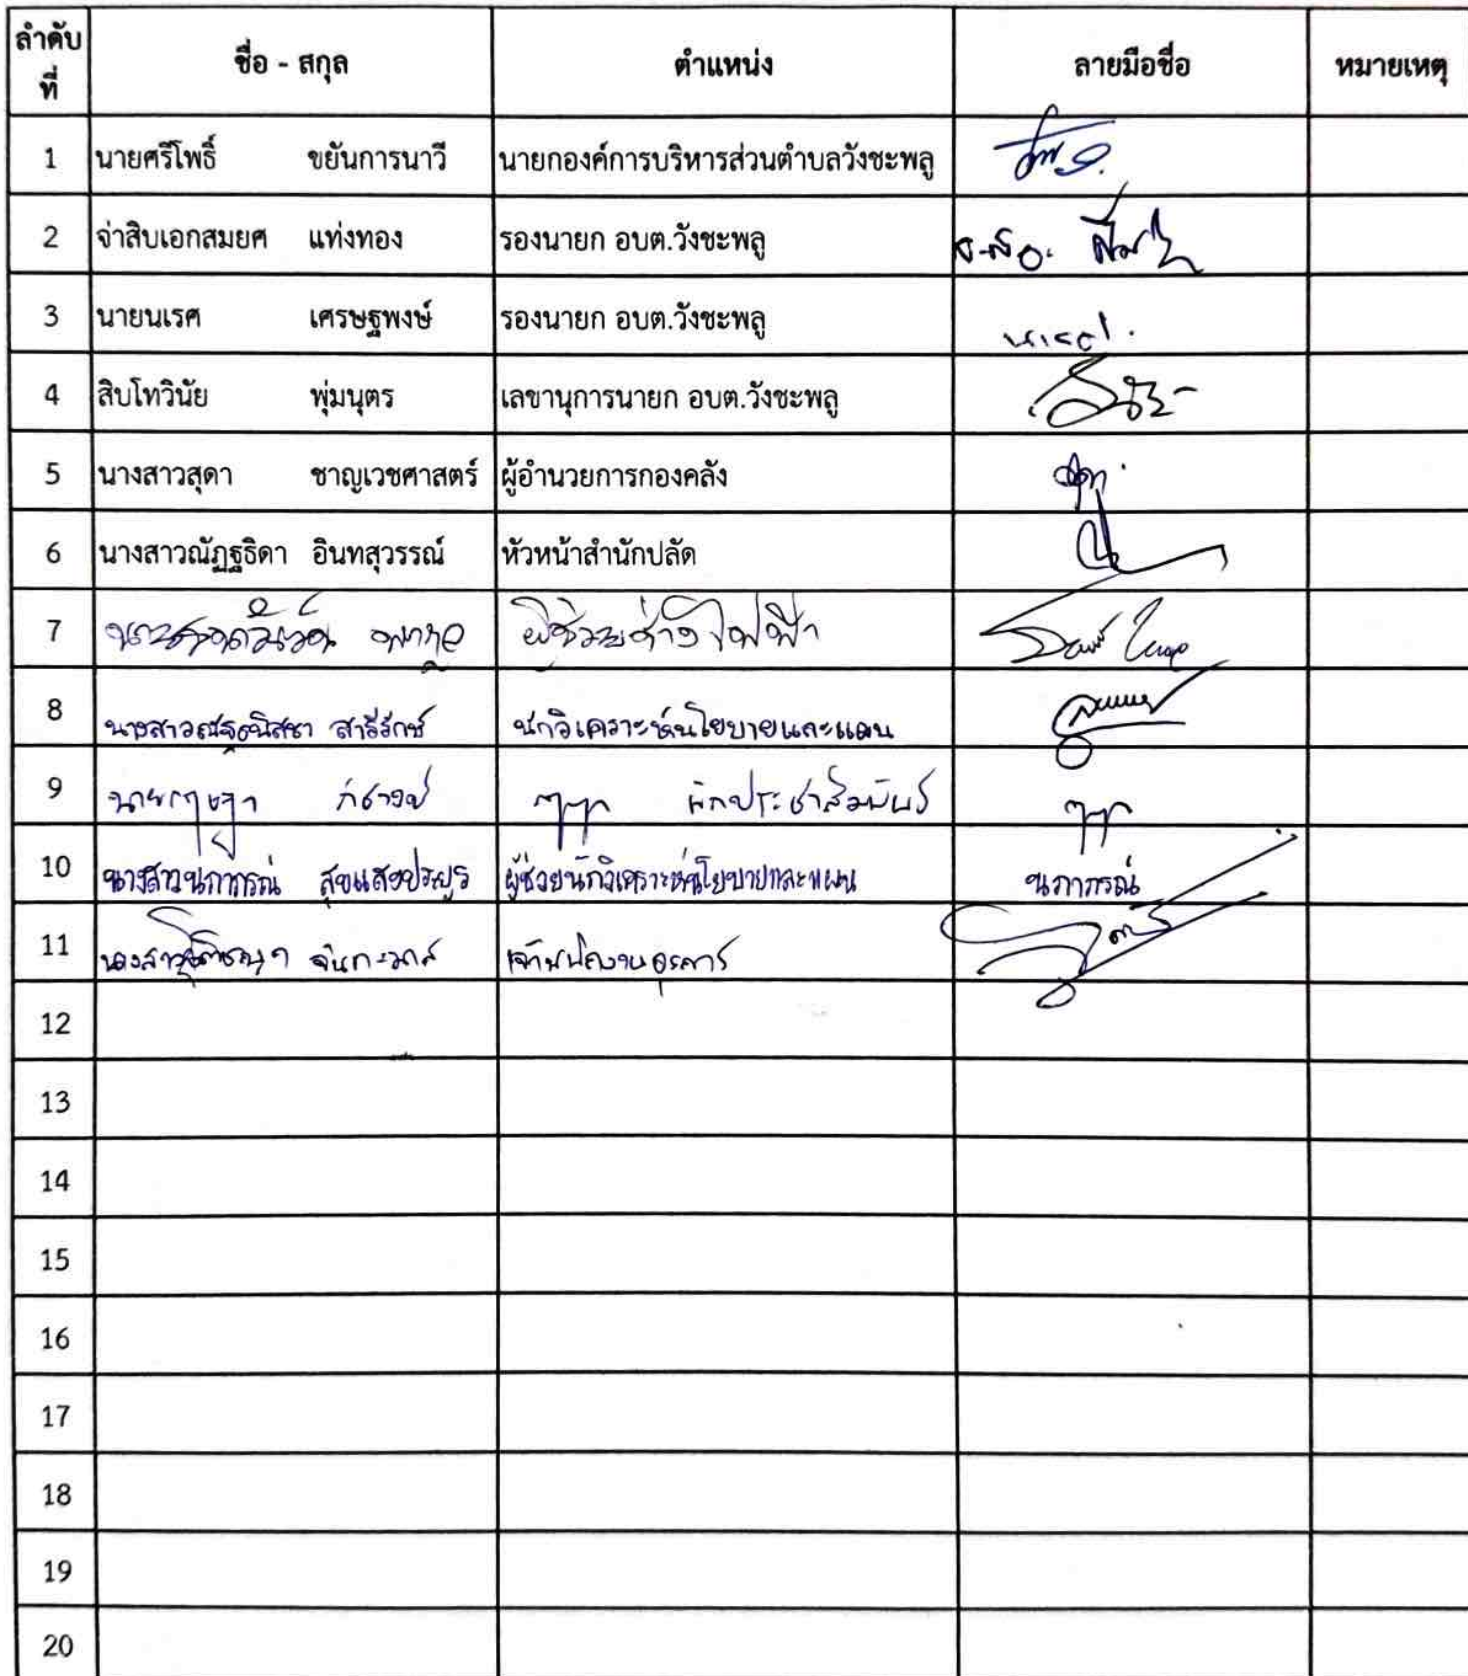 ลำดับ ที่ ชื่อ - สกุล ตำแหน่ง ลายมือชื่อ หมายเหตุ
1 นายศรีโพธิ์ ขยันการนาวี นายกองค์การบริหารส่วนตำบลวังชะพลู
2 จ่าสิบเอกสมยศ แท่งทอง รองนายก อบต.วังชะพลู จ.ส.อ.
3 นายนเรศ เศรษฐพงษ์ รองนายก อบต.วังชะพลู นเรศ
4 สิบโทวินัย พุ่มนุตร เลขานุการนายก อบต.วังชะพลู
5 นางสาวสุดา ชาญเวชศาสตร์ ผู้อำนวยการกองคลัง
6 นางสาวณัฏฐธิดา อินทสุวรรณ์ หัวหน้าสำนักปลัด
7 ผู้ช่วยช่างไฟฟ้า
8 นางสาวณัฐณิสชา สารีรักษ์ นักวิเคราะห์นโยบายและแผน
9 นักประชาสัมพันธ์
10 นางสาวนภาภรณ์ สุขแสงประยูร ผู้ช่วยนักวิเคราะห์นโยบายและแผน นภาภรณ์
11 นางสาว เจ้าพนักงานธุรการ
12
13
14
15
16
17
18
19
20